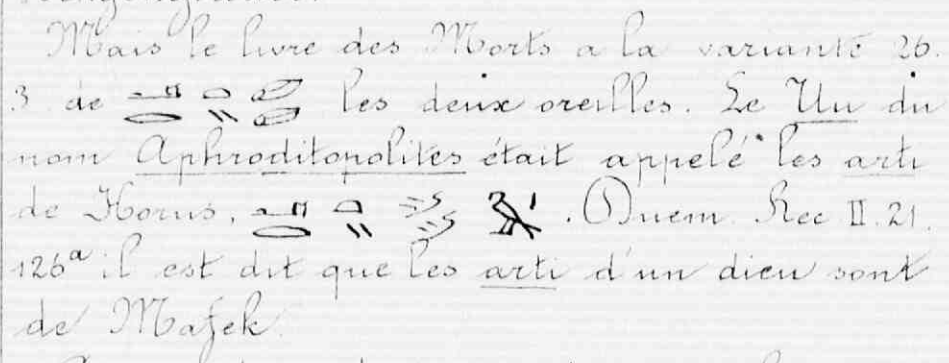 Mais le livre des Morts a la variante 26.
3 de les deux oreilles. Le Uu du
nom Aphroditopolites était appelé les arti
de Horus, . Duem. Rec II. 21.
126ª il est dit que les arti d'un dieu sont
de Mafek.